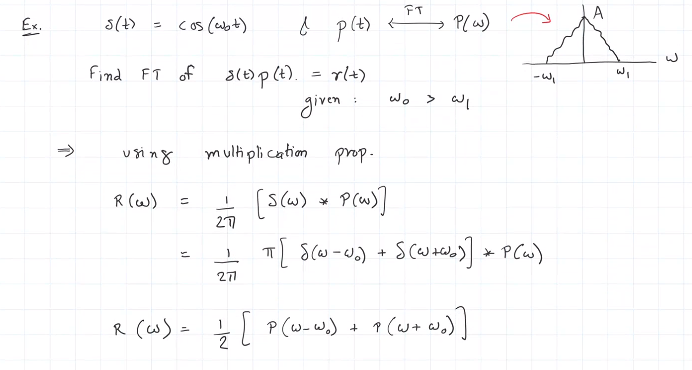 Ex. s(t) = cos(ω₀t) & p(t) ⟷ᶠᵀ P(ω) A
-ω₁ ω₁ ω
Find FT of s(t)p(t). = r(t)
given : ω₀ > ω₁
⇒ using multiplication prop.
R(ω) = 1/2π [S(ω) * P(ω)]
= 1/2π π[δ(ω-ω₀) + δ(ω+ω₀)] * P(ω)
R(ω) = 1/2 [P(ω-ω₀) + P(ω+ω₀)]